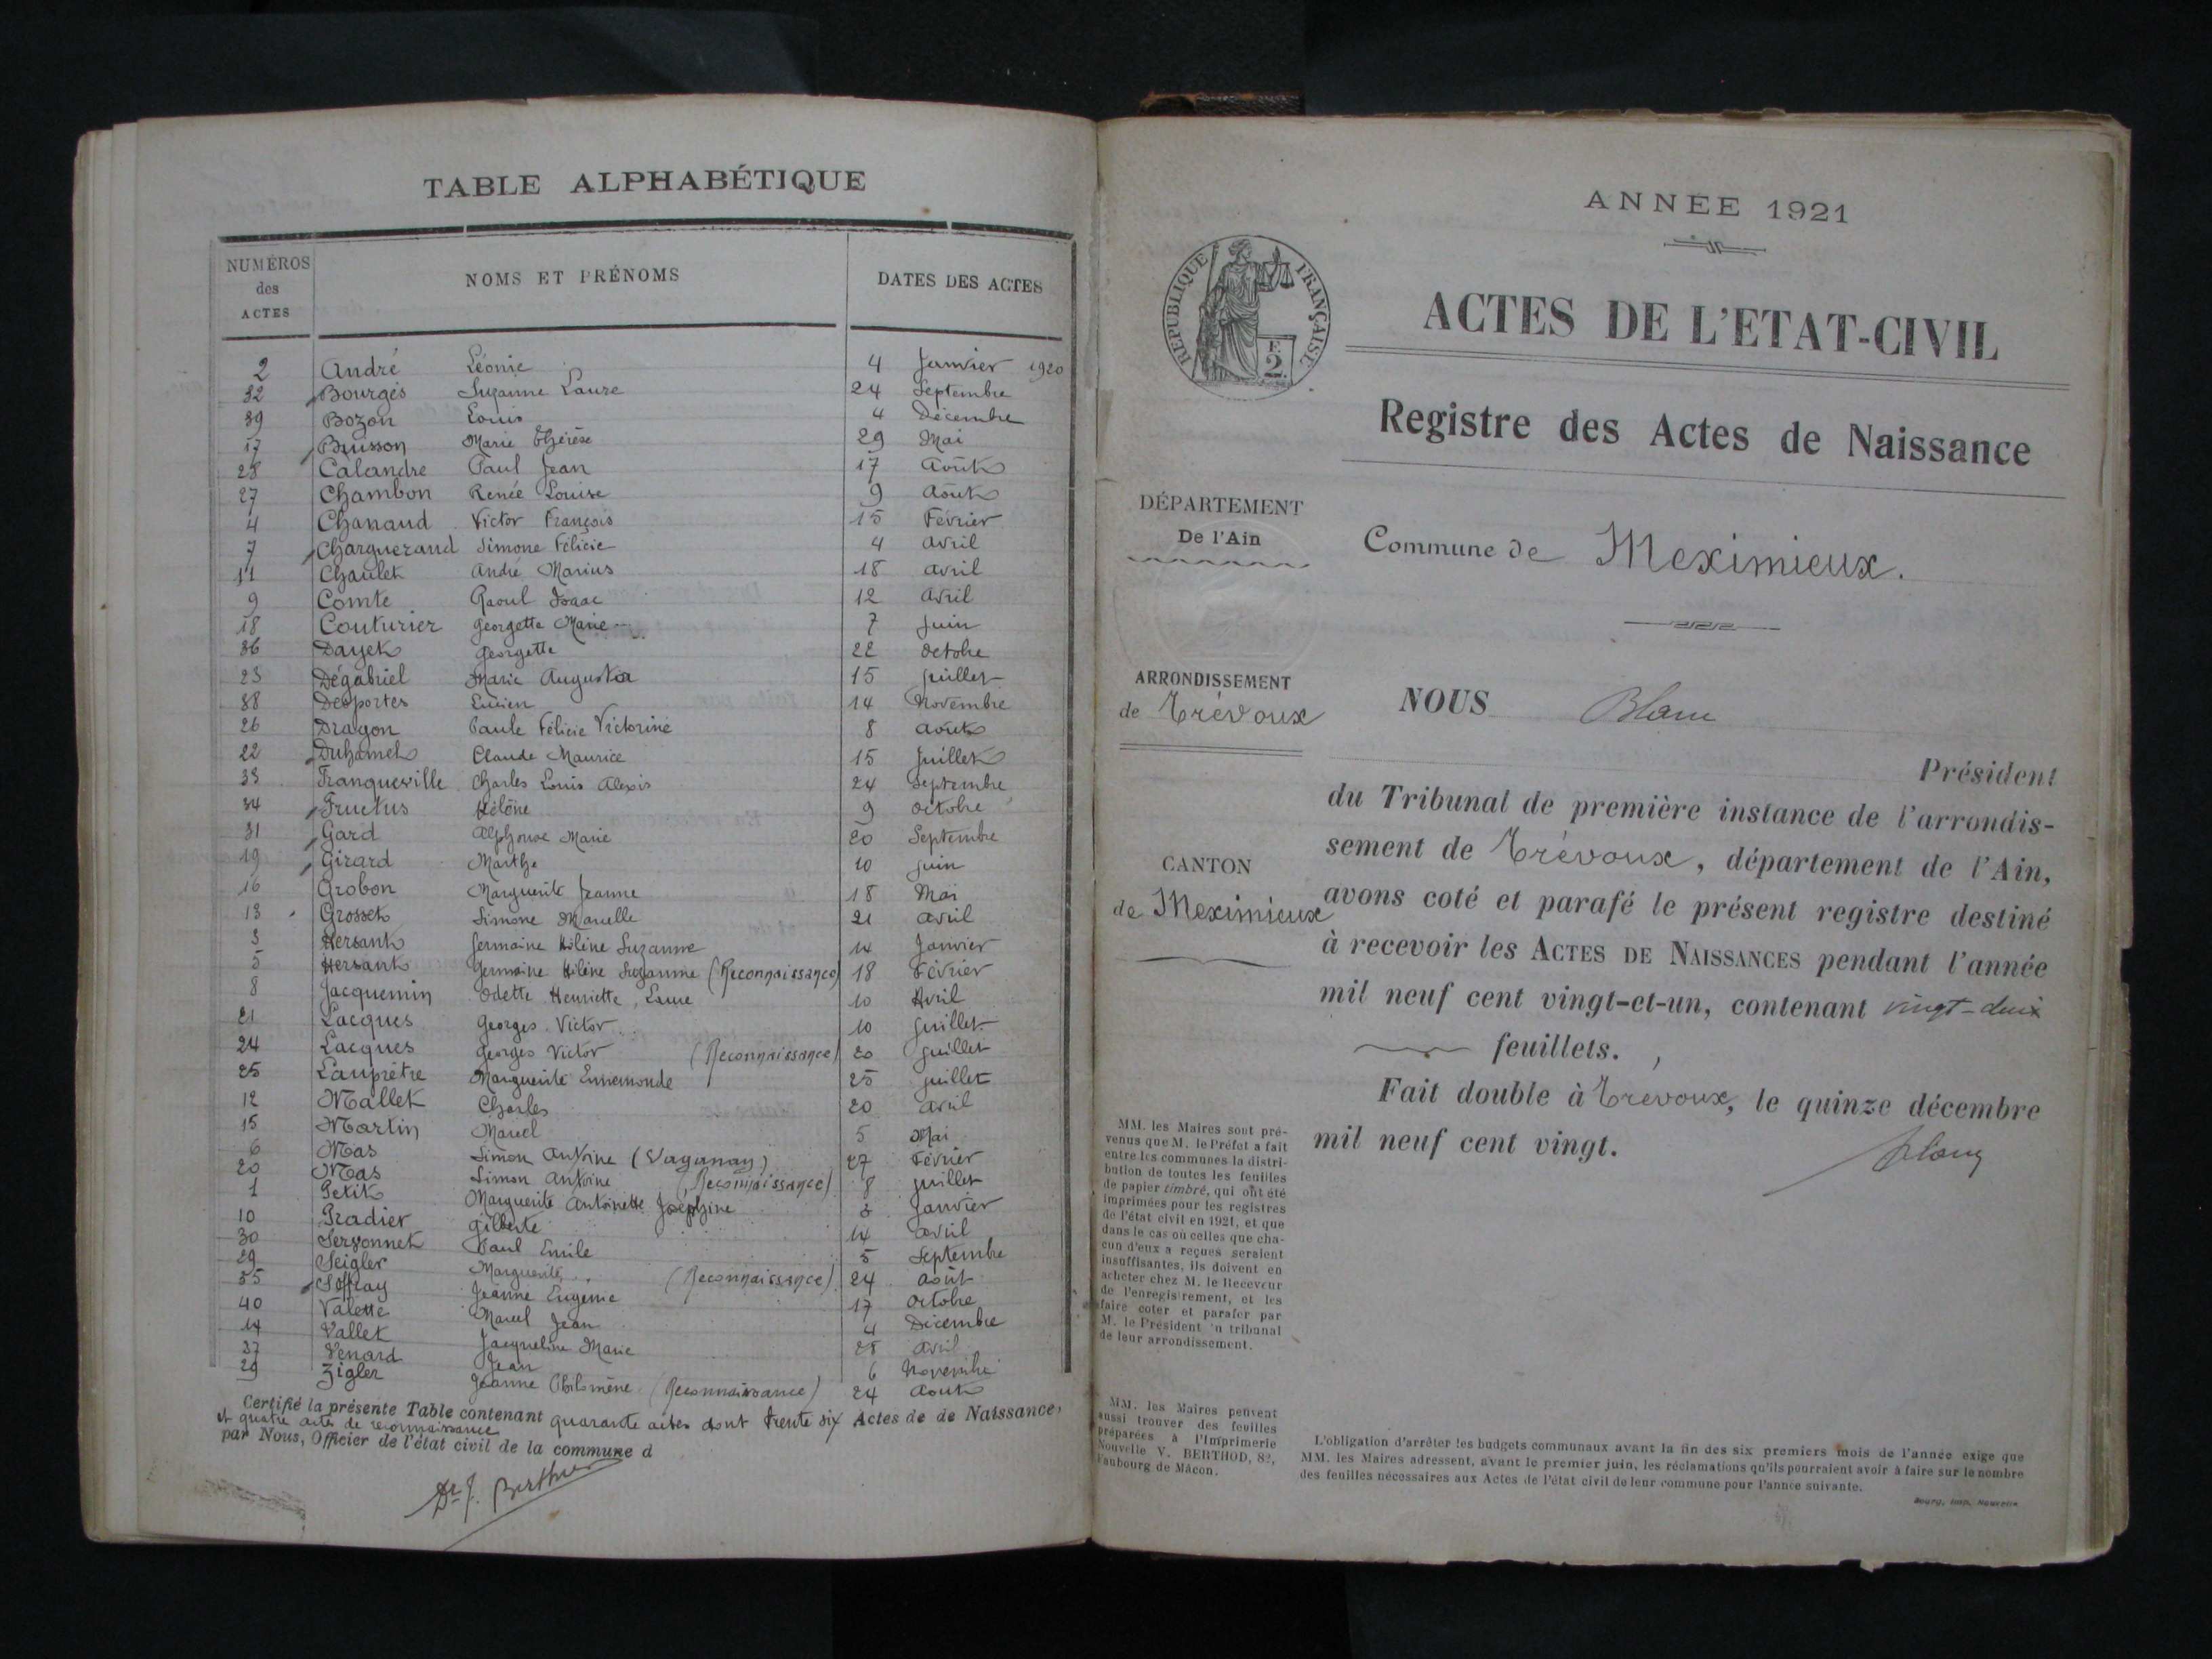 TABLE ALPHABÉTIQUE
NUMÉROS des ACTES NOMS ET PRÉNOMS DATES DES ACTES
2 André Léonie 4 Janvier 1920
32 Bourges Suzanne Laure 24 Septembre
39 Bozon Louis 4 Décembre
17 Buisson Marie Thérèse 29 Mai
28 Calandre Paul Jean 17 Août
27 Chambon Renée Louise 9 Août
4 Chanaud Victor François 15 Février
7 Chargueraud Simone Félicie 4 Avril
11 Chaulet André Marius 18 Avril
9 Comte Raoul Isaac 12 Avril
18 Couturier Georgette Marie 7 Juin
36 Dayet Georgette 22 Octobre
23 Dégabriel Marie Augusta 15 Juillet
38 Desportes Lucien 14 Novembre
26 Dragon Paule Félicie Victorine 8 Août
22 Duhamel Claude Maurice 15 Juillet
33 Franqueville Charles Louis Alexis 24 Septembre
34 Fructus Hélène 9 Octobre
31 Gard Alphonse Marie 20 Septembre
19 Girard Marthe 10 Juin
16 Grobon Marguerite Jeanne 18 Mai
13 Grosset Simone Marcelle 21 Avril
3 Hersant Germaine Hélène Suzanne 14 Janvier
5 Hersant Germaine Hélène Suzanne (Reconnaissance) 18 Février
8 Jacquemin Odette Henriette Laure 10 Avril
21 Lacques Georges Victor 10 Juillet
24 Lacques Georges Victor (Reconnaissance) 20 Juillet
25 Lauprêtre Marguerite Ennemonde 25 Juillet
12 Mallet Charles 20 Avril
15 Martin Marcel 5 Mai
6 Mas Simon Antoine (Vaganay) 27 Février
20 Mas Simon Antoine (Reconnaissance) 8 Juillet
1 Petit Marguerite Antoinette Joséphine 3 Janvier
10 Pradier Gilberte 14 Avril
30 Servonnet Paul Emile 5 Septembre
29 Seigler Marguerite (Reconnaissance) 24 Août
35 Soffray Jeanne Eugénie 17 Octobre
40 Valette Marcel Jean 4 Décembre
14 Vallet Jacqueline Marie 28 Avril
37 Venard Jean 6 Novembre
29 Zigler Jeanne Philomène (Reconnaissance) 24 Août
Certifié la présente Table contenant quarante actes dont trente six Actes de de Naissance,
et quatre actes de reconnaissance
par Nous, Officier de l'état civil de la commune d
Dr J. Berthier
ANNÉE 1921
RÉPUBLIQUE FRANÇAISE
F. 2
ACTES DE L'ETAT-CIVIL
Registre des Actes de Naissance
DÉPARTEMENT
De l'Ain
Commune de Meximieux.
ARRONDISSEMENT
de Trévoux
CANTON
de Meximieux
NOUS Blanc
Président
du Tribunal de première instance de l'arrondis-
sement de Trévoux, département de l'Ain,
avons coté et parafé le présent registre destiné
à recevoir les ACTES DE NAISSANCES pendant l'année
mil neuf cent vingt-et-un, contenant vingt-deux
feuillets.
Fait double à Trévoux, le quinze décembre
mil neuf cent vingt.
Blanc
MM. les Maires sont pré-
venus que M. le Préfet a fait
entre les communes la distri-
bution de toutes les feuilles
de papier timbré, qui ont été
imprimées pour les registres
de l'état civil en 1921, et que
dans le cas où celles que cha-
cun d'eux a reçues seraient
insuffisantes, ils doivent en
acheter chez M. le Receveur
de l'enregistrement, et les
faire coter et parafer par
M. le Président du tribunal
de leur arrondissement.
MM. les Maires peuvent
aussi trouver des feuilles
préparées à l'Imprimerie
Nouvelle V. BERTHOD, 82,
Faubourg de Mâcon.
L'obligation d'arrêter les budgets communaux avant la fin des six premiers mois de l'année exige que
MM. les Maires adressent, avant le premier juin, les réclamations qu'ils pourraient avoir à faire sur le nombre
des feuilles nécessaires aux Actes de l'état civil de leur commune pour l'année suivante.
Bourg, Imp. Nouvelle